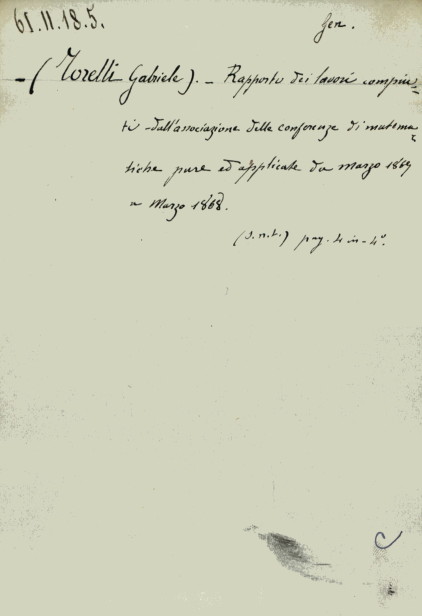 61.II.18.5. Gen.
- (Torelli Gabriele). - Rapporto dei lavori compiu=
ti dall'associazione delle conferenze di matema=
tiche pure ed applicate da marzo 1867
a Marzo 1868.
(s.n.t.) pag. 4 in-4°.